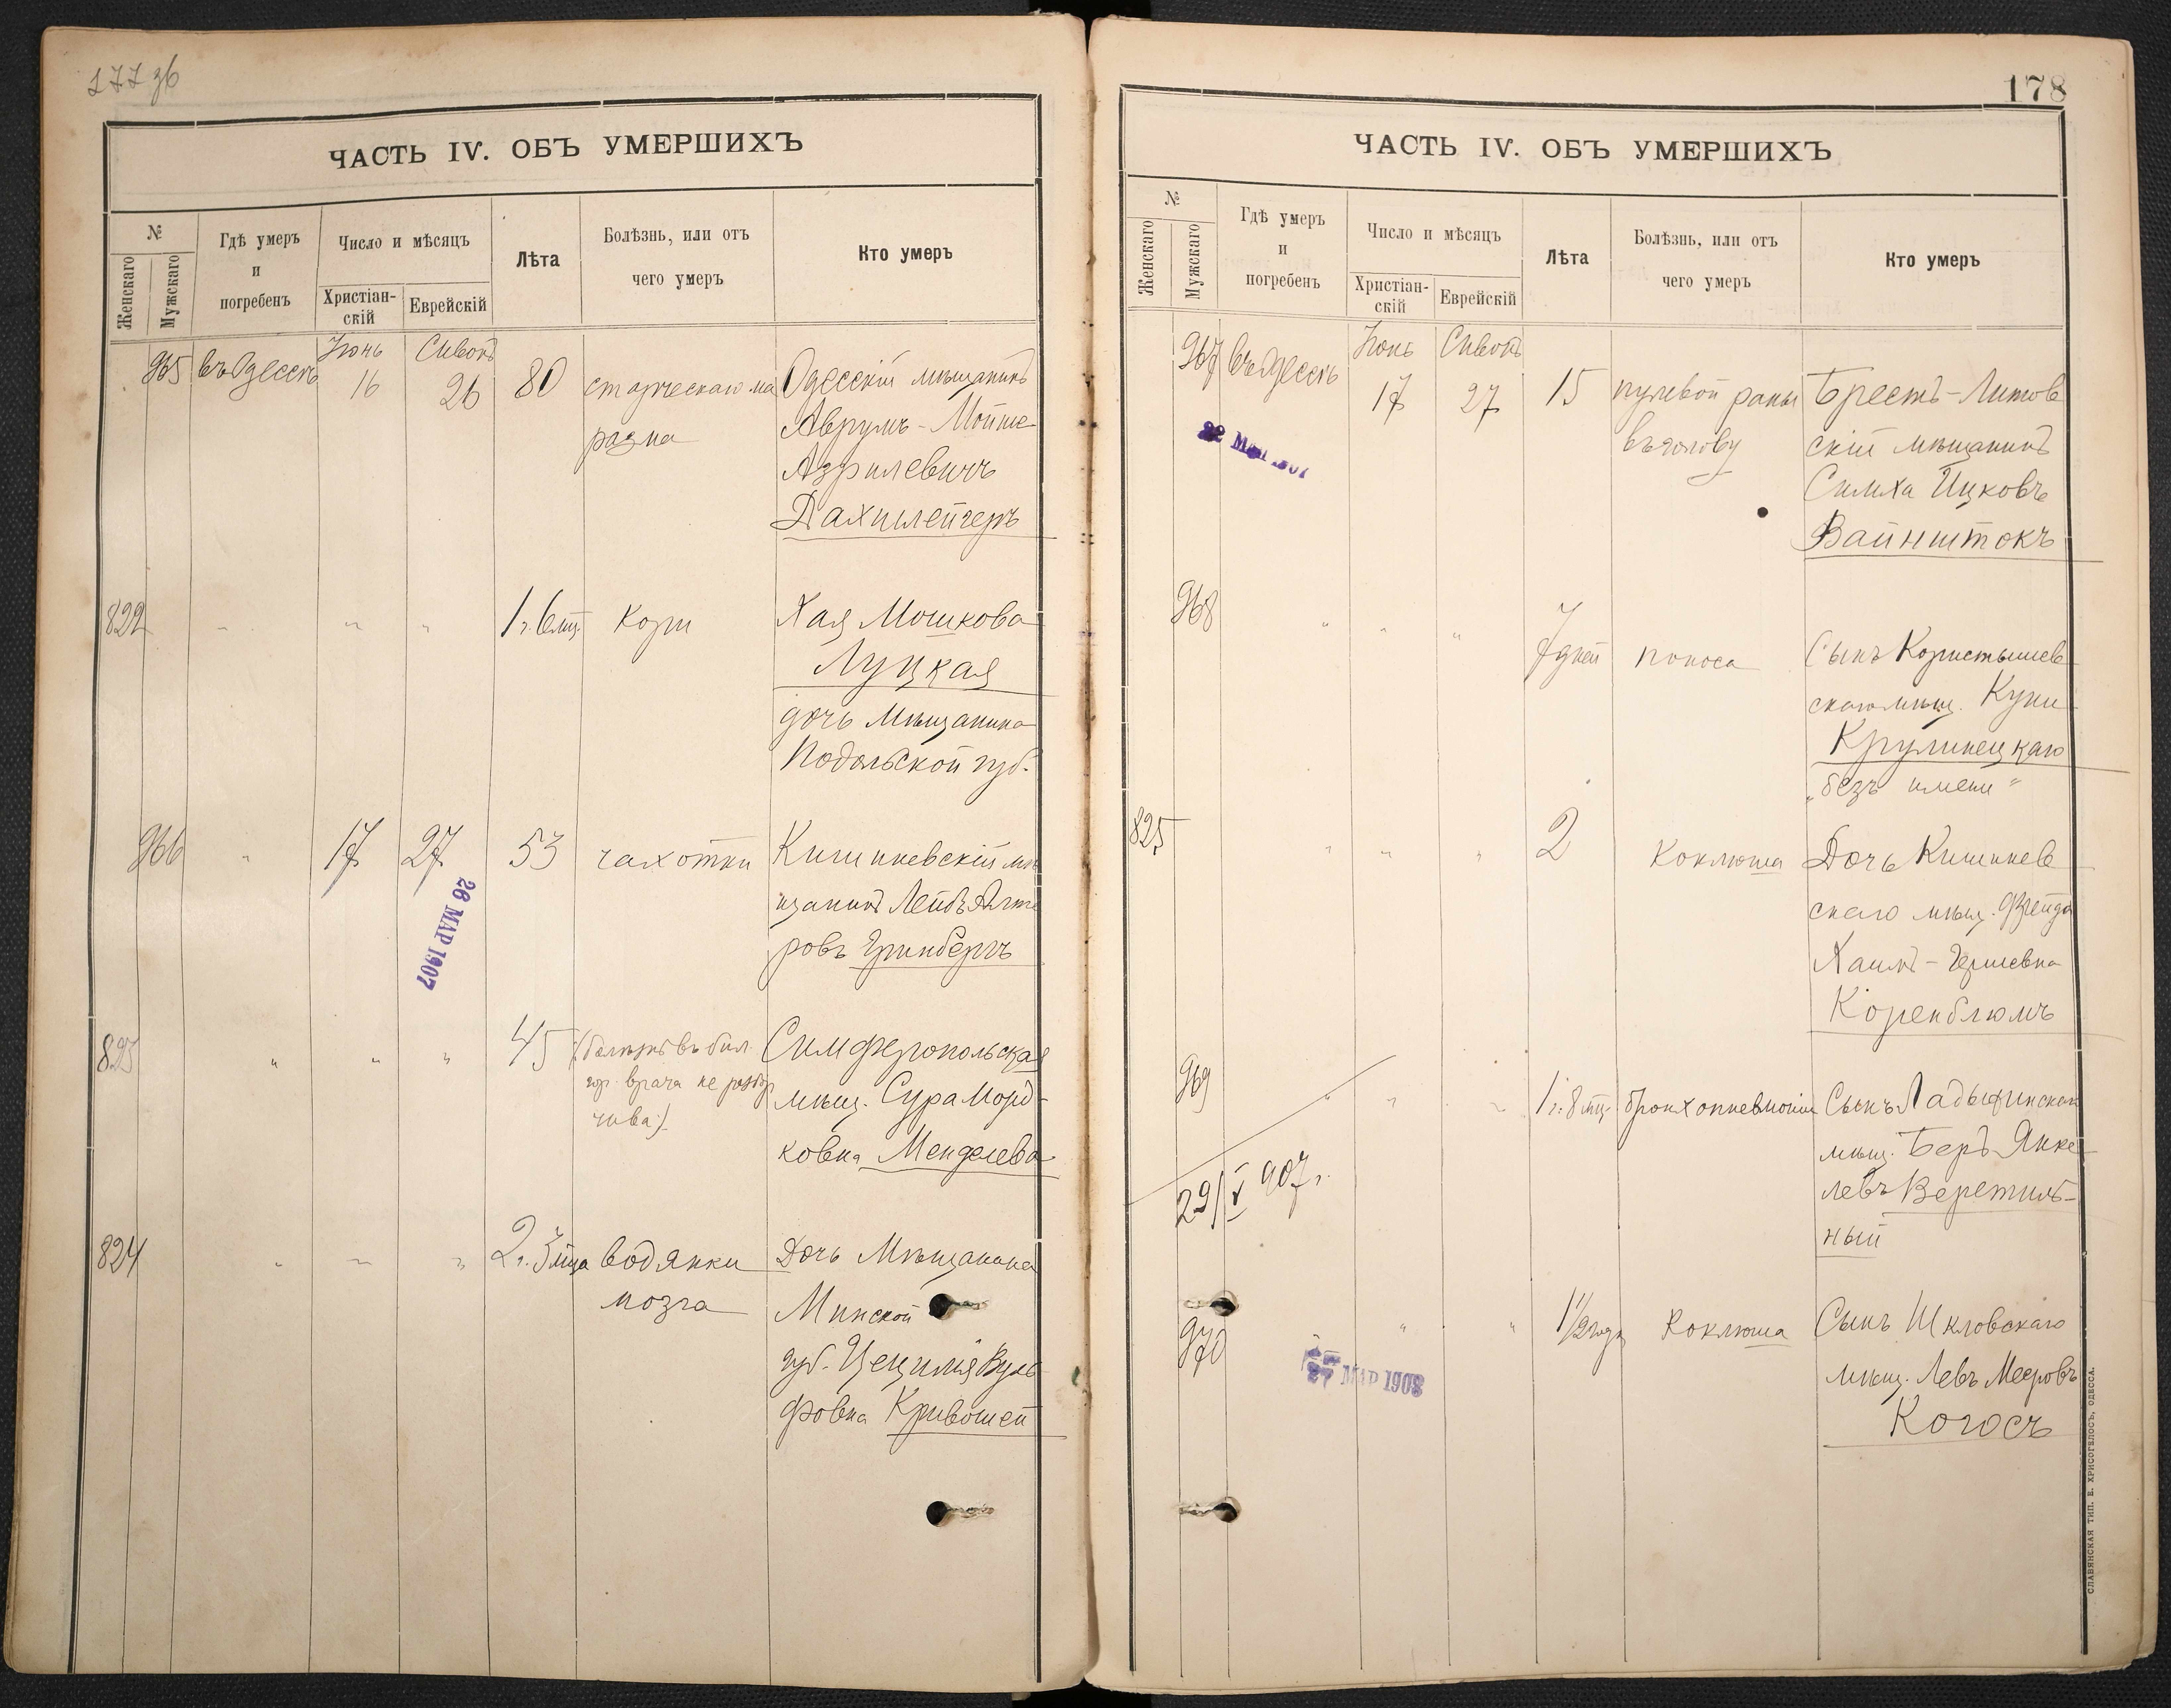 177 зб
ЧАСТЬ IV. ОБЪ УМЕРШИХЪ
№
Женскаго
Мужскаго
Гдѣ умеръ
и
погребенъ
Число и мѣсяцъ
Христіан-
скій
Еврейскій
Лѣта
Болѣзнь, или отъ
чего умеръ
Кто умеръ
965
въ Одессѣ
Іюнь
16
Сивонъ
26
80
старческаго ма
разма
Одесскій мѣщанинъ
Аврумъ-Мойше
Азрилевичъ
Дахшлейгеръ
822
" " "
1 г. 6 мц.
Кори
Хая Мошкова
Луцкая
дочь мѣщанина
Подольской губ.
966
"
17
27
28 МАР 1907
53
чахотки
Кишиневскій мѣ
щанинъ Лейбъ Алте
ровъ Гринбергъ
823
" " "
45
(болѣзнь въ бил.
гор. врача не разбор
чива)
Симферопольская
мѣщ. Сура Морд-
ковна Менделева
824
" " "
2 г. 3 мца
водянки
мозга
Дочь Мѣщанина
Минской
губ. Цецилія Вуль
фовна Кривошей
178
ЧАСТЬ IV. ОБЪ УМЕРШИХЪ
№
Женскаго
Мужскаго
Гдѣ умеръ
и
погребенъ
Число и мѣсяцъ
Христіан-
скій
Еврейскій
Лѣта
Болѣзнь, или отъ
чего умеръ
Кто умеръ
967
въ Одессѣ
22 1907
Іюнь
17
Сивонъ
27
15
пулевой раны
въ голову
Брестъ-Литов
скій мѣщанинъ
Симха Ицковъ
Вайнштокъ
968
" " "
7 дней
поноса
Сынъ Коростышев
скаго мѣщ. Куни
Крупинецкаго
„безъ имени"
825
" " "
2
Коклюша
Дочь Кишинев
скаго мѣщ. Фрейда
Хаимъ-Гершевна
Коренблюмъ
969
" " "
29/V 907 г.
1 г. 8 мц.
бронхопневмоніи
Сынъ Ладыжинскаго
мѣщ. Беръ Янке
левъ Веретиль-
ный
970
" " "
27 МАР 1908
1 1/2 года
Коклюша
Сынъ Шкловскаго
мѣщ. Левъ Мееровъ
Когосъ
СЛАВЯНСКАЯ ТИП. Е. ХРИСОГЕЛОСЪ, ОДЕССА.